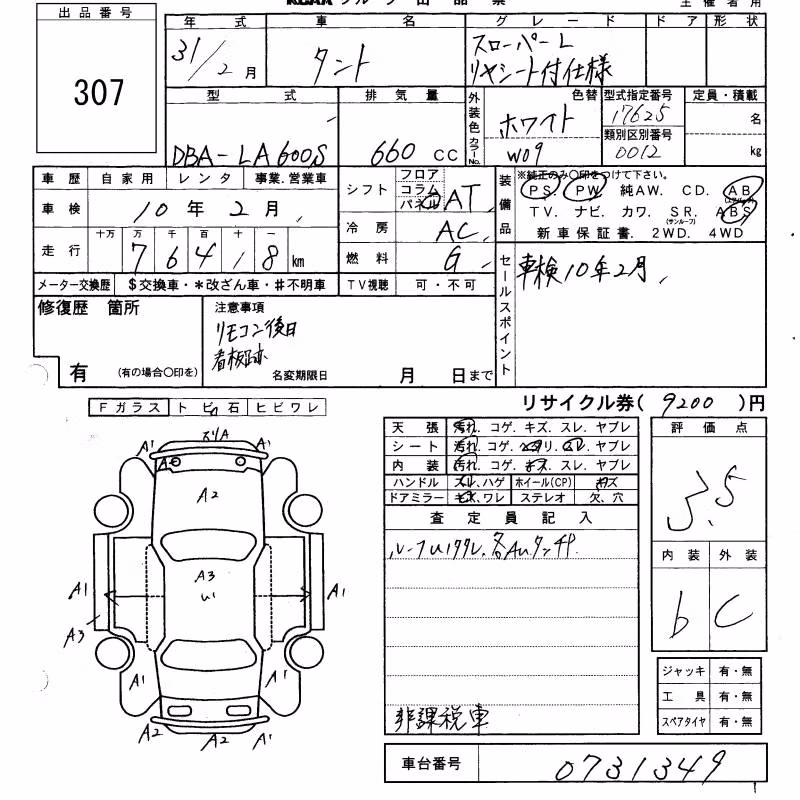 出品番号
307
年式 車名 グレード ドア形状
31/2月 タント スローパーL リヤシート付仕様
型式 排気量 外装色 色替 型式指定番号 定員・積載
カラーNo. ホワイト 17625 名
類別区別番号
DBA-LA600S 660 CC W09 0012 kg
車歴 自家用 レンタ 事業.営業車
シフト フロア コラム パネル AT
装備品 ※純正のみ〇印をつけて下さい。
PS. PW. 純AW. CD. AB
(エアバック)
車検 10年2月
TV. ナビ. カワ. SR. ABS
(サンルーフ)
冷房 AC
新車保証書. 2WD. 4WD
走行 十万 万 千 百 十 一
76418 km
燃料 G
セールスポイント 車検10年2月
メーター交換歴 $交換車・*改ざん車・#不明車 TV視聴 可・不可
修復歴 箇所
注意事項
リモコン後日
看板跡
有 (有の場合〇印を) 名変期限日 月 日まで
リサイクル券( 9200 )円
Fガラス トビ石 ヒビワレ
天張 汚れ. コゲ. キズ. スレ. ヤブレ
シート 汚れ. コゲ. ヘタリ. スレ. ヤブレ
内装 汚れ. コゲ. キズ. スレ. ヤブレ
ハンドル スレ.ハゲ ホイール(CP) キズ
ドアミラー キズ.ワレ ステレオ 欠、穴
評価点
3.5
査定員記入
内装 外装
b C
非課税車
ジャッキ 有・無
工具 有・無
スペアタイヤ 有・無
車台番号 0731349
A1 A1
A1 A1
A2
A3
A1 A1
A3
A1 A1
A2 A2 A1